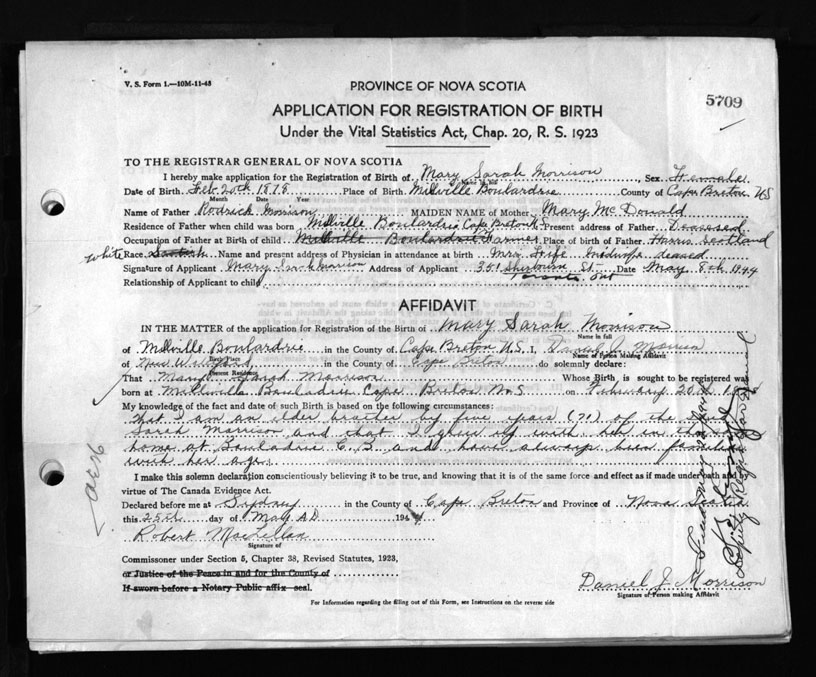 V. S. Form 1.—10M-11-43
PROVINCE OF NOVA SCOTIA
5709
APPLICATION FOR REGISTRATION OF BIRTH
Under the Vital Statistics Act, Chap. 20, R. S. 1923
TO THE REGISTRAR GENERAL OF NOVA SCOTIA
I hereby make application for the Registration of Birth of Mary Sarah Morrison, Sex Female
Date of Birth Feb 20th 1878 Place of Birth Millville Boulardrie County of Cape Breton N.S
Month Date Year
Name of Father Rodrick Morrison MAIDEN NAME of Mother Mary McDonald
Residence of Father when child was born Millville Boulardrie Cape Breton N.S Present address of Father Deceased
Occupation of Father at Birth of child Millville Boulardrie Farmer Place of birth of Father Harris Scotland
white Race Scotch Name and present address of Physician in attendance at birth Mrs Fife Midwife
Signature of Applicant Mary Sarah Morrison Address of Applicant 351 Sherbourne St. Date May 8th 1944
Toronto Ont
Relationship of Applicant to child
AFFIDAVIT
IN THE MATTER of the application for Registration of the Birth of Mary Sarah Morrison
Name in full
of Millville Boulardrie in the County of Cape Breton N.S I, Daniel J Morrison
Birth Place Name of Person Making Affidavit
of New in the County of Cape Breton do solemnly declare:
Present Residence
That Mary Sarah Morrison Whose Birth is sought to be registered was
born at Millville Boulardrie Cape Breton N.S on February 20th
My knowledge of the fact and date of such Birth is based on the following circumstances:
That I am an older brother by five years (71) of the
Sarah Morrison and that I grew up with her in the
home at Bouladrie C.B and have always been familiar
with her age.
I make this solemn declaration conscientiously believing it to be true, and knowing that it is of the same force and effect as if made under oath and by
virtue of The Canada Evidence Act.
Declared before me at Sydney in the County of Cape Breton and Province of Nova Scotia
this 25th day of May AD 1944
Robert MacLellan
Signature of
Commissioner under Section 5, Chapter 38, Revised Statutes, 1923,
or Justice of the Peace in and for the County of
If sworn before a Notary Public affix seal.
Daniel J Morrison
Signature of Person making Affidavit
For Information regarding the filling out of this Form, see Instructions on the reverse side
Deputy Registrar General